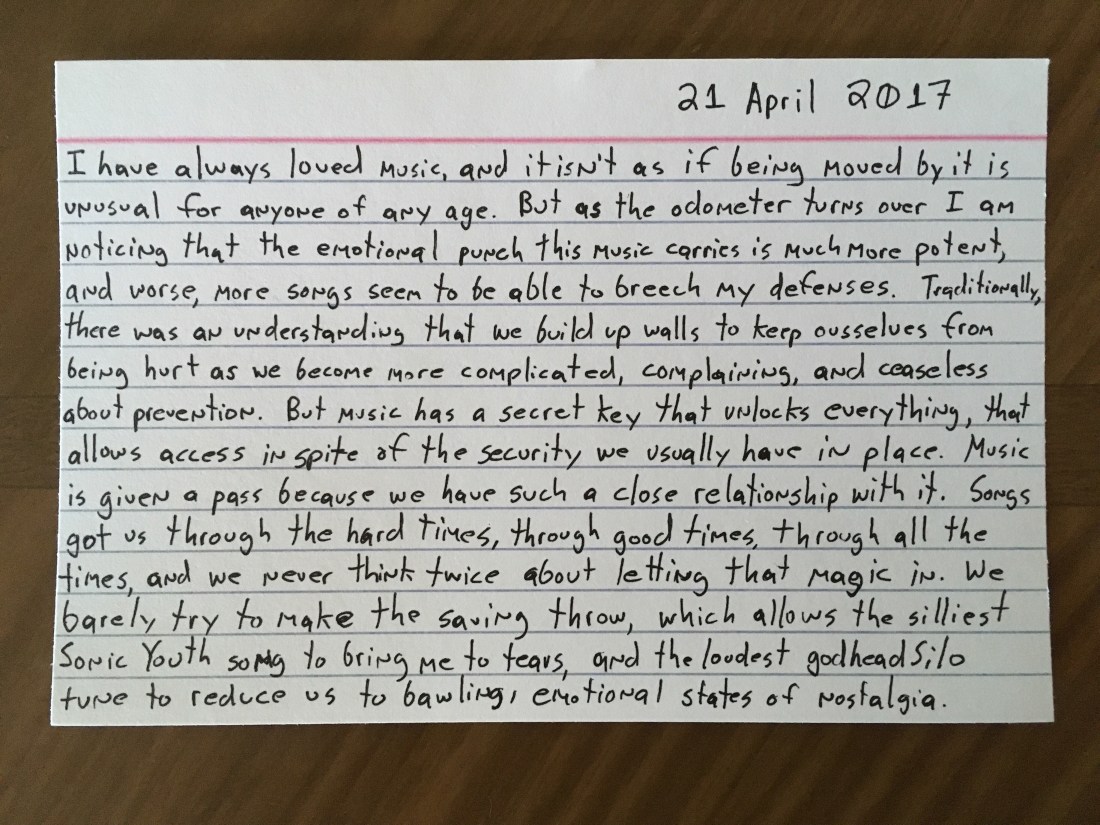 21 April 2017
I have always loved music, and it isn't as if being moved by it is
unusual for anyone of any age. But as the odometer turns over I am
noticing that the emotional punch this music carries is much more potent,
and worse, more songs seem to be able to breech my defenses. Traditionally,
there was an understanding that we build up walls to keep ousselves from
being hurt as we become more complicated, complaining, and ceaseless
about prevention. But music has a secret key that unlocks everything, that
allows access in spite of the security we usually have in place. Music
is given a pass because we have such a close relationship with it. Songs
got us through the hard times, through good times, through all the
times, and we never think twice about letting that magic in. We
barely try to make the saving throw, which allows the silliest
Sonic Youth song to bring me to tears, and the loudest godheadSilo
tune to reduce us to bawling, emotional states of nostalgia.